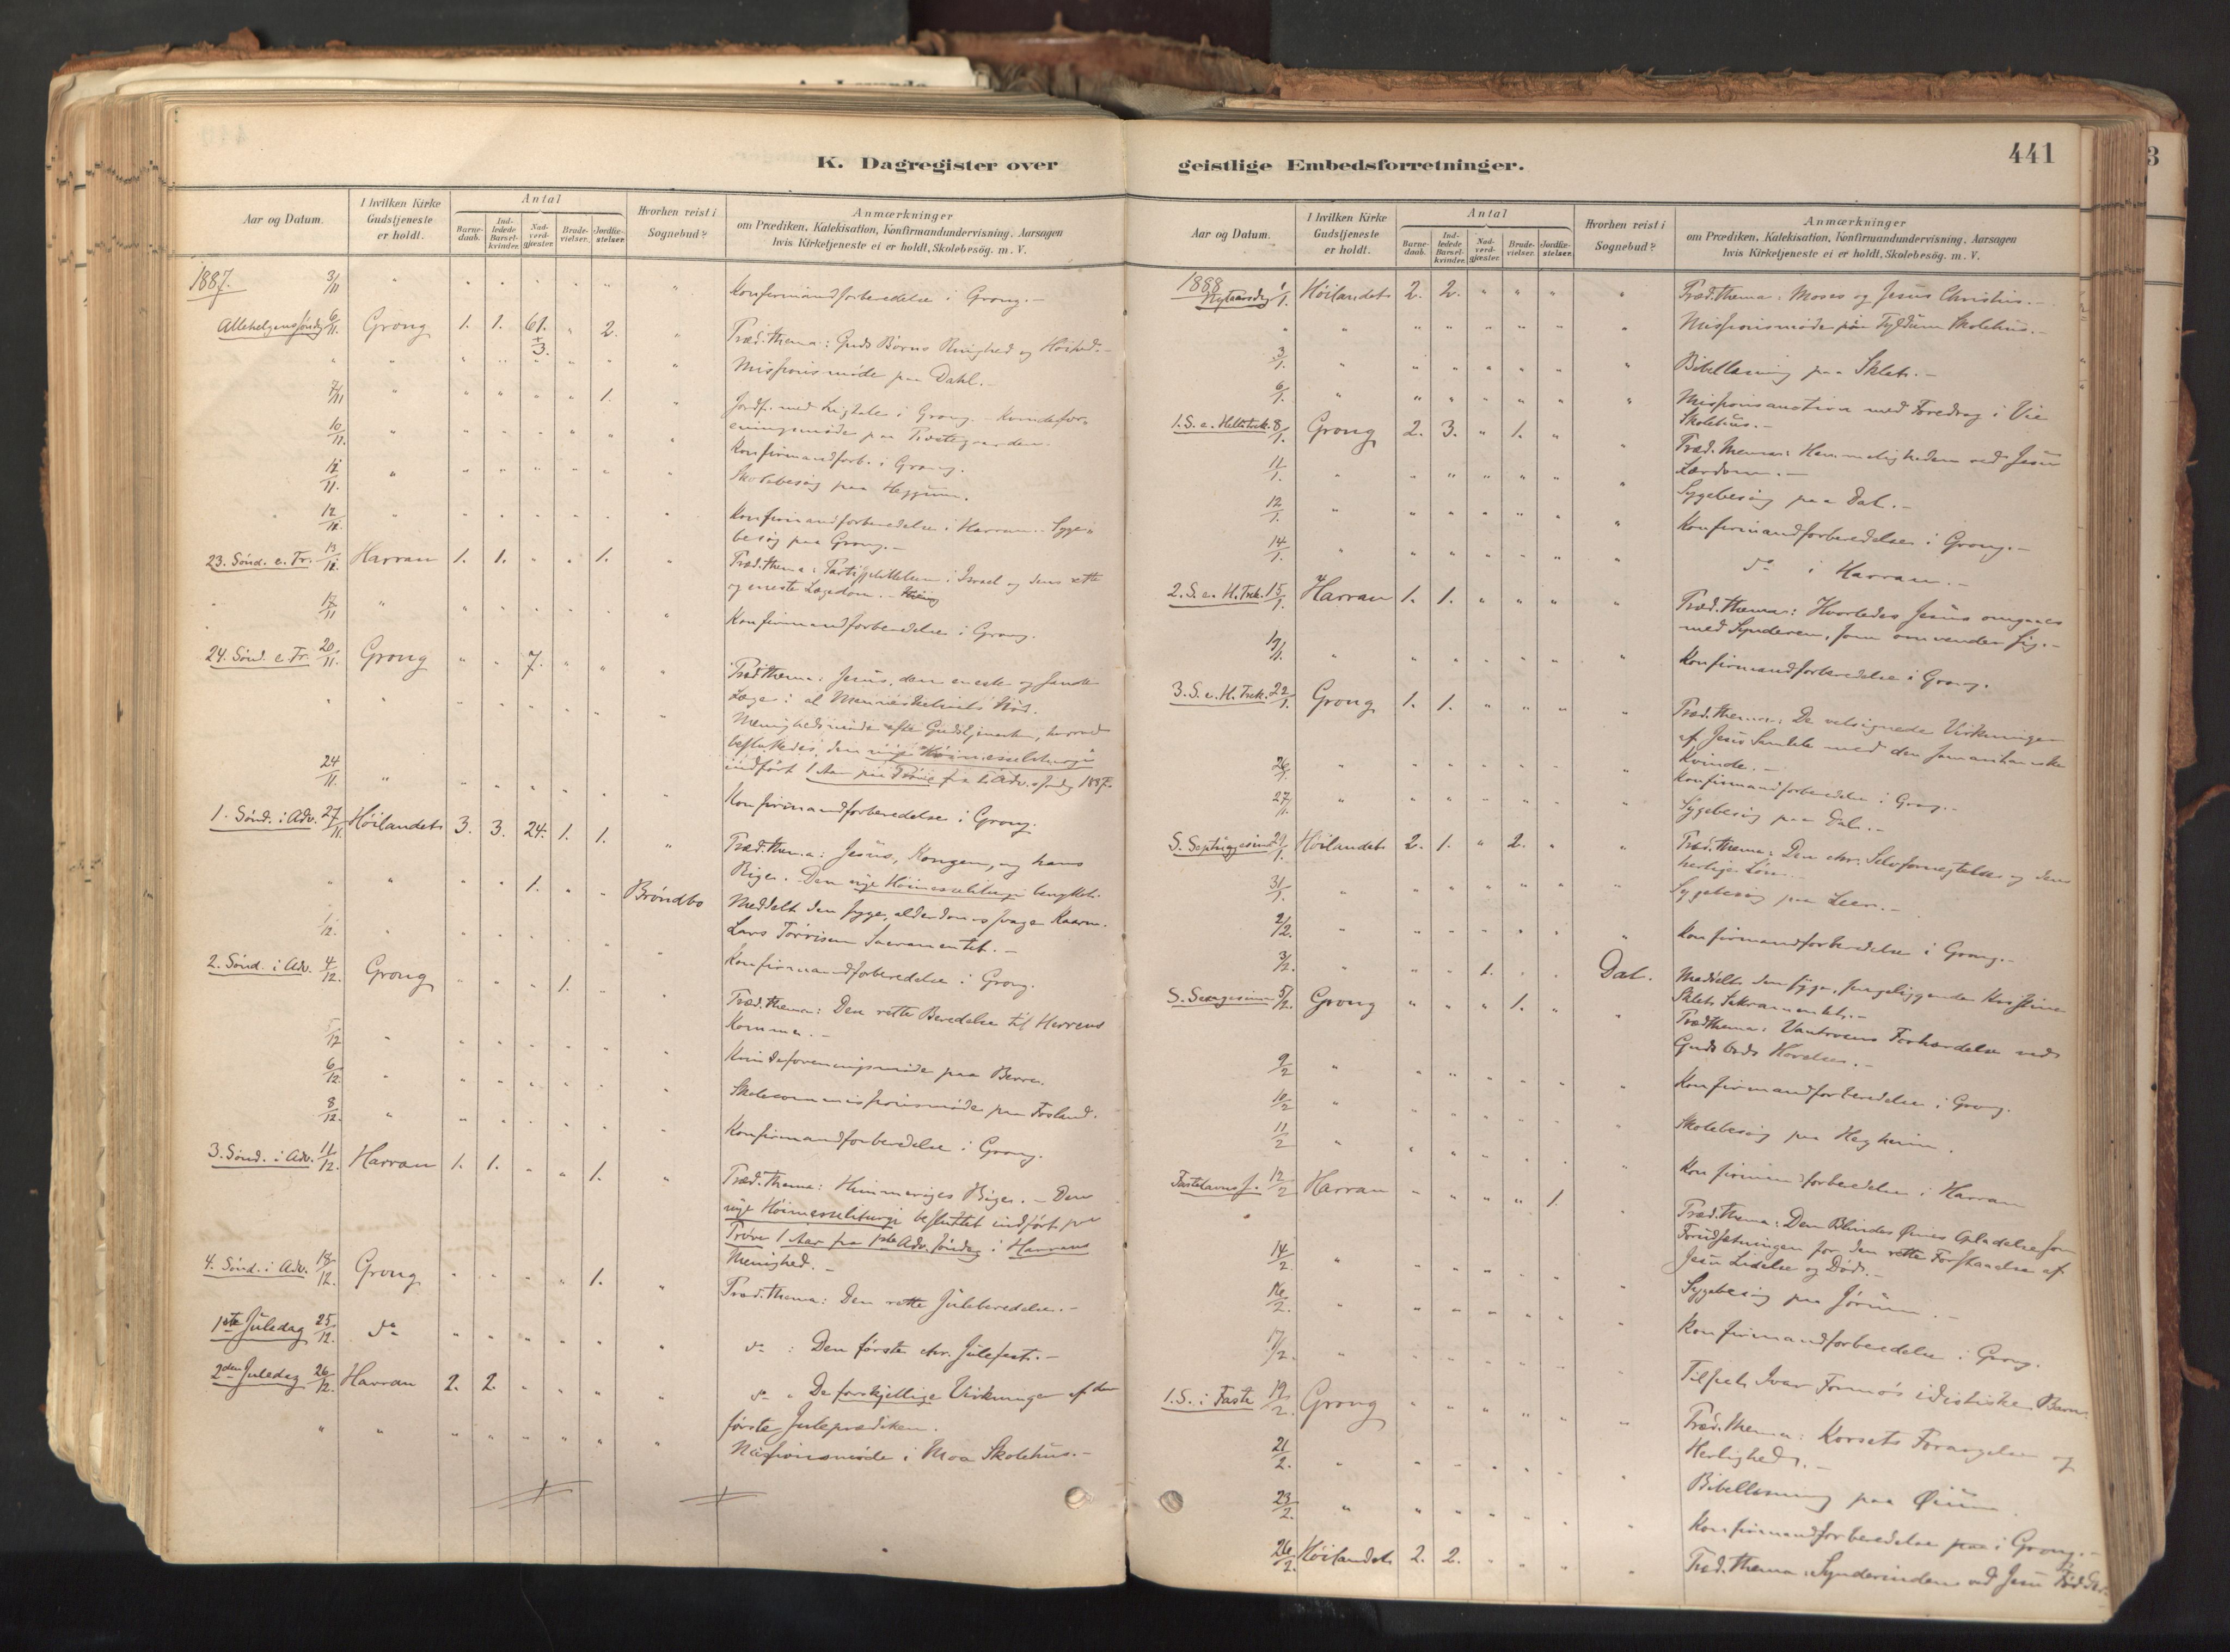 K. Dagregister over
Aar og Datum.
I hvilken Kirke Gudstjeneste er holdt.
Antal
Barne-daab.
Ind-ledede Barsel-kvinder.
Nad-verd-gjester
Brude-vielser.
Jordfæ-stelser
Hvorhen reist i Sognebud?
Anmærkninger
om Prædiken, Katekisation, Konfirmandundervisning, Aarsagen
hvis Kirketjeneste ei er holdt, Skolebesög. m. V.
1887. 3/11 " " " " " " " Konfirmandforberedelse i Grong.-
Allehelgenssöndg 6/11. Grong 1. 1. 61. + 3. " 2. " Præd. thema: Guds Börns Ringhed og Höihed.-
" " " " " " " " Missionsmöde paa Dahl.-
7/11 " " " " " 1. " Jordf. med Ligtale i Grong. Kvindefor-
eningsmöde paa Prestegaarden.
10/11. " " " " " " " Konfirmandforb. i Grong.
11/11. " " " " " " " Skolebesög paa Heggum.
12/11. " " " " " " " Konfirmandforberedelse i Harran. Syge-
besög paa Grong.-
23. Sönd. e. Fr. 13/11. Harran 1. 1. " " 1. " Præd. thema: Partisplittelsen i Israel og dens rette
og eneste Lægedom.-
17/11 " " " " " " " Konfirmandforberedelse i Grong.
24. Sönd. e Fr. 20/11. Grong " " 7. " " " Præd. thema: Jesus, den eneste og sande
Læge i al Menneskelivets Nöd.
" " " " " " " " Menighedsmöde efter Gudstjenesten, hvorved
besluttedes, den nye Höimesseliturgi
indfört 1 Aar paa Pröve fra 1. Adv. söndag 1887.
24/11. " " " " " " " Konfirmandforberedelse i Grong.
1. Sönd. i Adv. 27/11. Höilandet 3. 3. 24. 1. 1. " Præd. thema: Jesus, Kongen, og hans
Rige. Den nye Höimesseliturgi benyttet.
" " " " 1. " " Bröndbo Meddelt den syge, alderdomssvage Kaarm.
Lars Torrisen Sacramentet.-
1/12. " " " " " " " Konfirmandforberedelse i Grong.
2. Sönd. i Adv. 4/12. Grong " " " 1. " " Præd. thema: Den rette Beredelse til Herrens
Komme.-
5/12 " " " " " " " Kvindeforeningsmöde paa Berre.
6/12. " " " " " " " Skolecommissionsmöde paa Fosland.
8/12. " " " " " " " Konfirmandforberedelse i Grong.
3. Sönd. i Adv. 11/12. Harran 1. 1. " " 1. " Præd. thema: Himmeriges Rige.- Den
nye Höimesseliturgi besluttet indfört paa
Pröve 1 Aar fra 1ste Adv. söndag i Harrans
Menighed.-
4. Sönd. i Adv. 18/12. Grong " " " " 1. " Præd. thema: Den rette Juleberedelse.-
1ste Juledag 25/12. do " " " " " " do : Den förste chr. Julefest.-
2den Juledag 26/12. Harran 2. 2. " " " " do : De forskjellige Virkninger af den
förste Juleprædiken.
" " " " " " " " Missionsmöde i Moa Skolehus.-

geistlige Embedsforretninger.
441
Aar og Datum.
I hvilken Kirke Gudstjeneste er holdt.
Antal
Barne-daab.
Ind-ledede Barsel-kvinder.
Nad-verd-gjester
Brude-vielser.
Jordfæ-stelser.
Hvorhen reist i Sognebud?
Anmærkninger
om Prædiken, Katekisation, Konfirmandundervisning, Aarsagen
hvis Kirketjeneste ei er holdt, Skolebesög. m. V.
1888 Nytaarsdag 1/1. Höilandet 2. 2. " " " " Præd. thema: Moses og Jesus Christus.-
" " " " " " " " Missionsmöde paa Tyldum Skolehus.-
3/1. " " " " " " " Bibellæsning paa Sklet.-
6/1. " " " " " " " Missionsauction med Foredrag i Vie
Skolehus.-
1. S. e. Helltrek. 8/1. Grong 2. 3. " 1. " " Præd. thema: Hemmeligheden ved Jesu
Lærdom.-
11/1. " " " " " " " Sygebesög paa Dal.-
12/1. " " " " " " " Konfirmandforberedelse i Grong.-
14/1. " " " " " " " do i Harran.-
2. S. e. H. Trek. 15/1. Harran 1. 1. " " " " Præd. thema: Hvorledes Jesus omgaaes
med Synderen, som omvender sig.-
19/1. " " " " " " " Konfirmandforberedelse i Grong.
3. S. e. H. Trek. 22/1. Grong 1. 1. " " " " Præd. thema: De velsignede Virkninger
af Jesu Samtale med den samaritanske
Kvinde.-
26/1. " " " " " " " Konfirmandforberedelse i Grong.-
27/1. " " " " " " " Sygebesög paa Dal.-
S. Septuagesima 29/1. Höilandet 2. 1. " 2. " " Præd. thema: Den chr. Selvfornegtelse og dens
herlige Lön.-
31/1. " " " " " " " Sygebesög paa Leer.-
2/2. " " " " " " " Konfirmandforberedelse i Grong.-
3/2. " " " 1. " " Dal. Meddelt den syge, sengeliggende Kirstine
Sklet Sakramentet.-
S. Sexagesima 5/2. Grong " " " 1. " " Præd thema: Vantroens Forhærdelse ved
Guds Ords Hörelse.-
9/2 " " " " " " " Konfirmandforberedelse i Grong.
10/2 " " " " " " " Skolebesög paa Hegheim.
11/2 " " " " " " " Konfirmandforberedelse i Harran
Fastelavns s. 12/2 Harran " " " " 1. " Præd. thema: Den Blindes Öines Opladelse som
Forudsætningen for den rette Forstaaelse af
Jesu Lidelse og Död.-
14/2. " " " " " " " Sygebesög paa Jörum.-
16/2. " " " " " " " Konfirmandforberedelse i Grong.
17/2. " " " " " " " Tilseet Ivar Formo's idiotiske Barn.
1. S. i Faste 19/2. Grong " " " " " " Præd. thema: Korsets Forargelse og
Herlighed.-
21/2. " " " " " " " Bibellæsning paa Öium.
23/2. " " " " " " " Konfirmandforberedelse i Grong.-
26/2. Höilandet 2. 2. " " " " Præd. thema: Synderinden ved Jesu